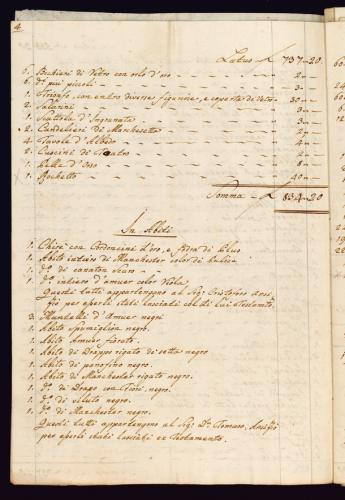 4.
Latus £ 737-20
6. Bichieri di Vetro con orlo d'oro - - - 2 -
6. d.i piu piccoli - - - 2 -
1. Trionfo, con entro diverse figurine, e coperta di Vetro - 30 -
2. Salarini - - - 3 -
1. Scattola d'Ingranata - - - 3 -
2. Candelieri di Manchesetta - - - 2 -
4. Tavole d'Albedo - - - 4 -
2. Cuscini di Teatro - - - 2 -
1. d'Oro - - - 8 -
1. Rochetto - - - 40 -
Somma - £ 834-20
In Abiti
1. con Cordoncini d'oro, e fodra di
1. Abito intiero di Manchester color di
1. d.o di scuro
1. d.o intiero d'amuer color Viola
Questi tutti appartengono al Sig.r Cristoforo
per esserli stati lasciati col di lui Testamto.
3. Mantelli d'Amuer negri
1. Abito Spumiglion negro.
1. Abito Amuer fiorato.
1. Abito di Drappo rigato di setta negro
1. Abito di panofino negro.
1. Abito di Manchester rigato negro.
1. d.o di Drapo con Fiori negro.
1. d.o di veluto negro.
1. d.o di Manchester negro.
Questi tutti appartengono al Sig.r D.n Tomaso,
per esserli stati lasciati ex Testamento.